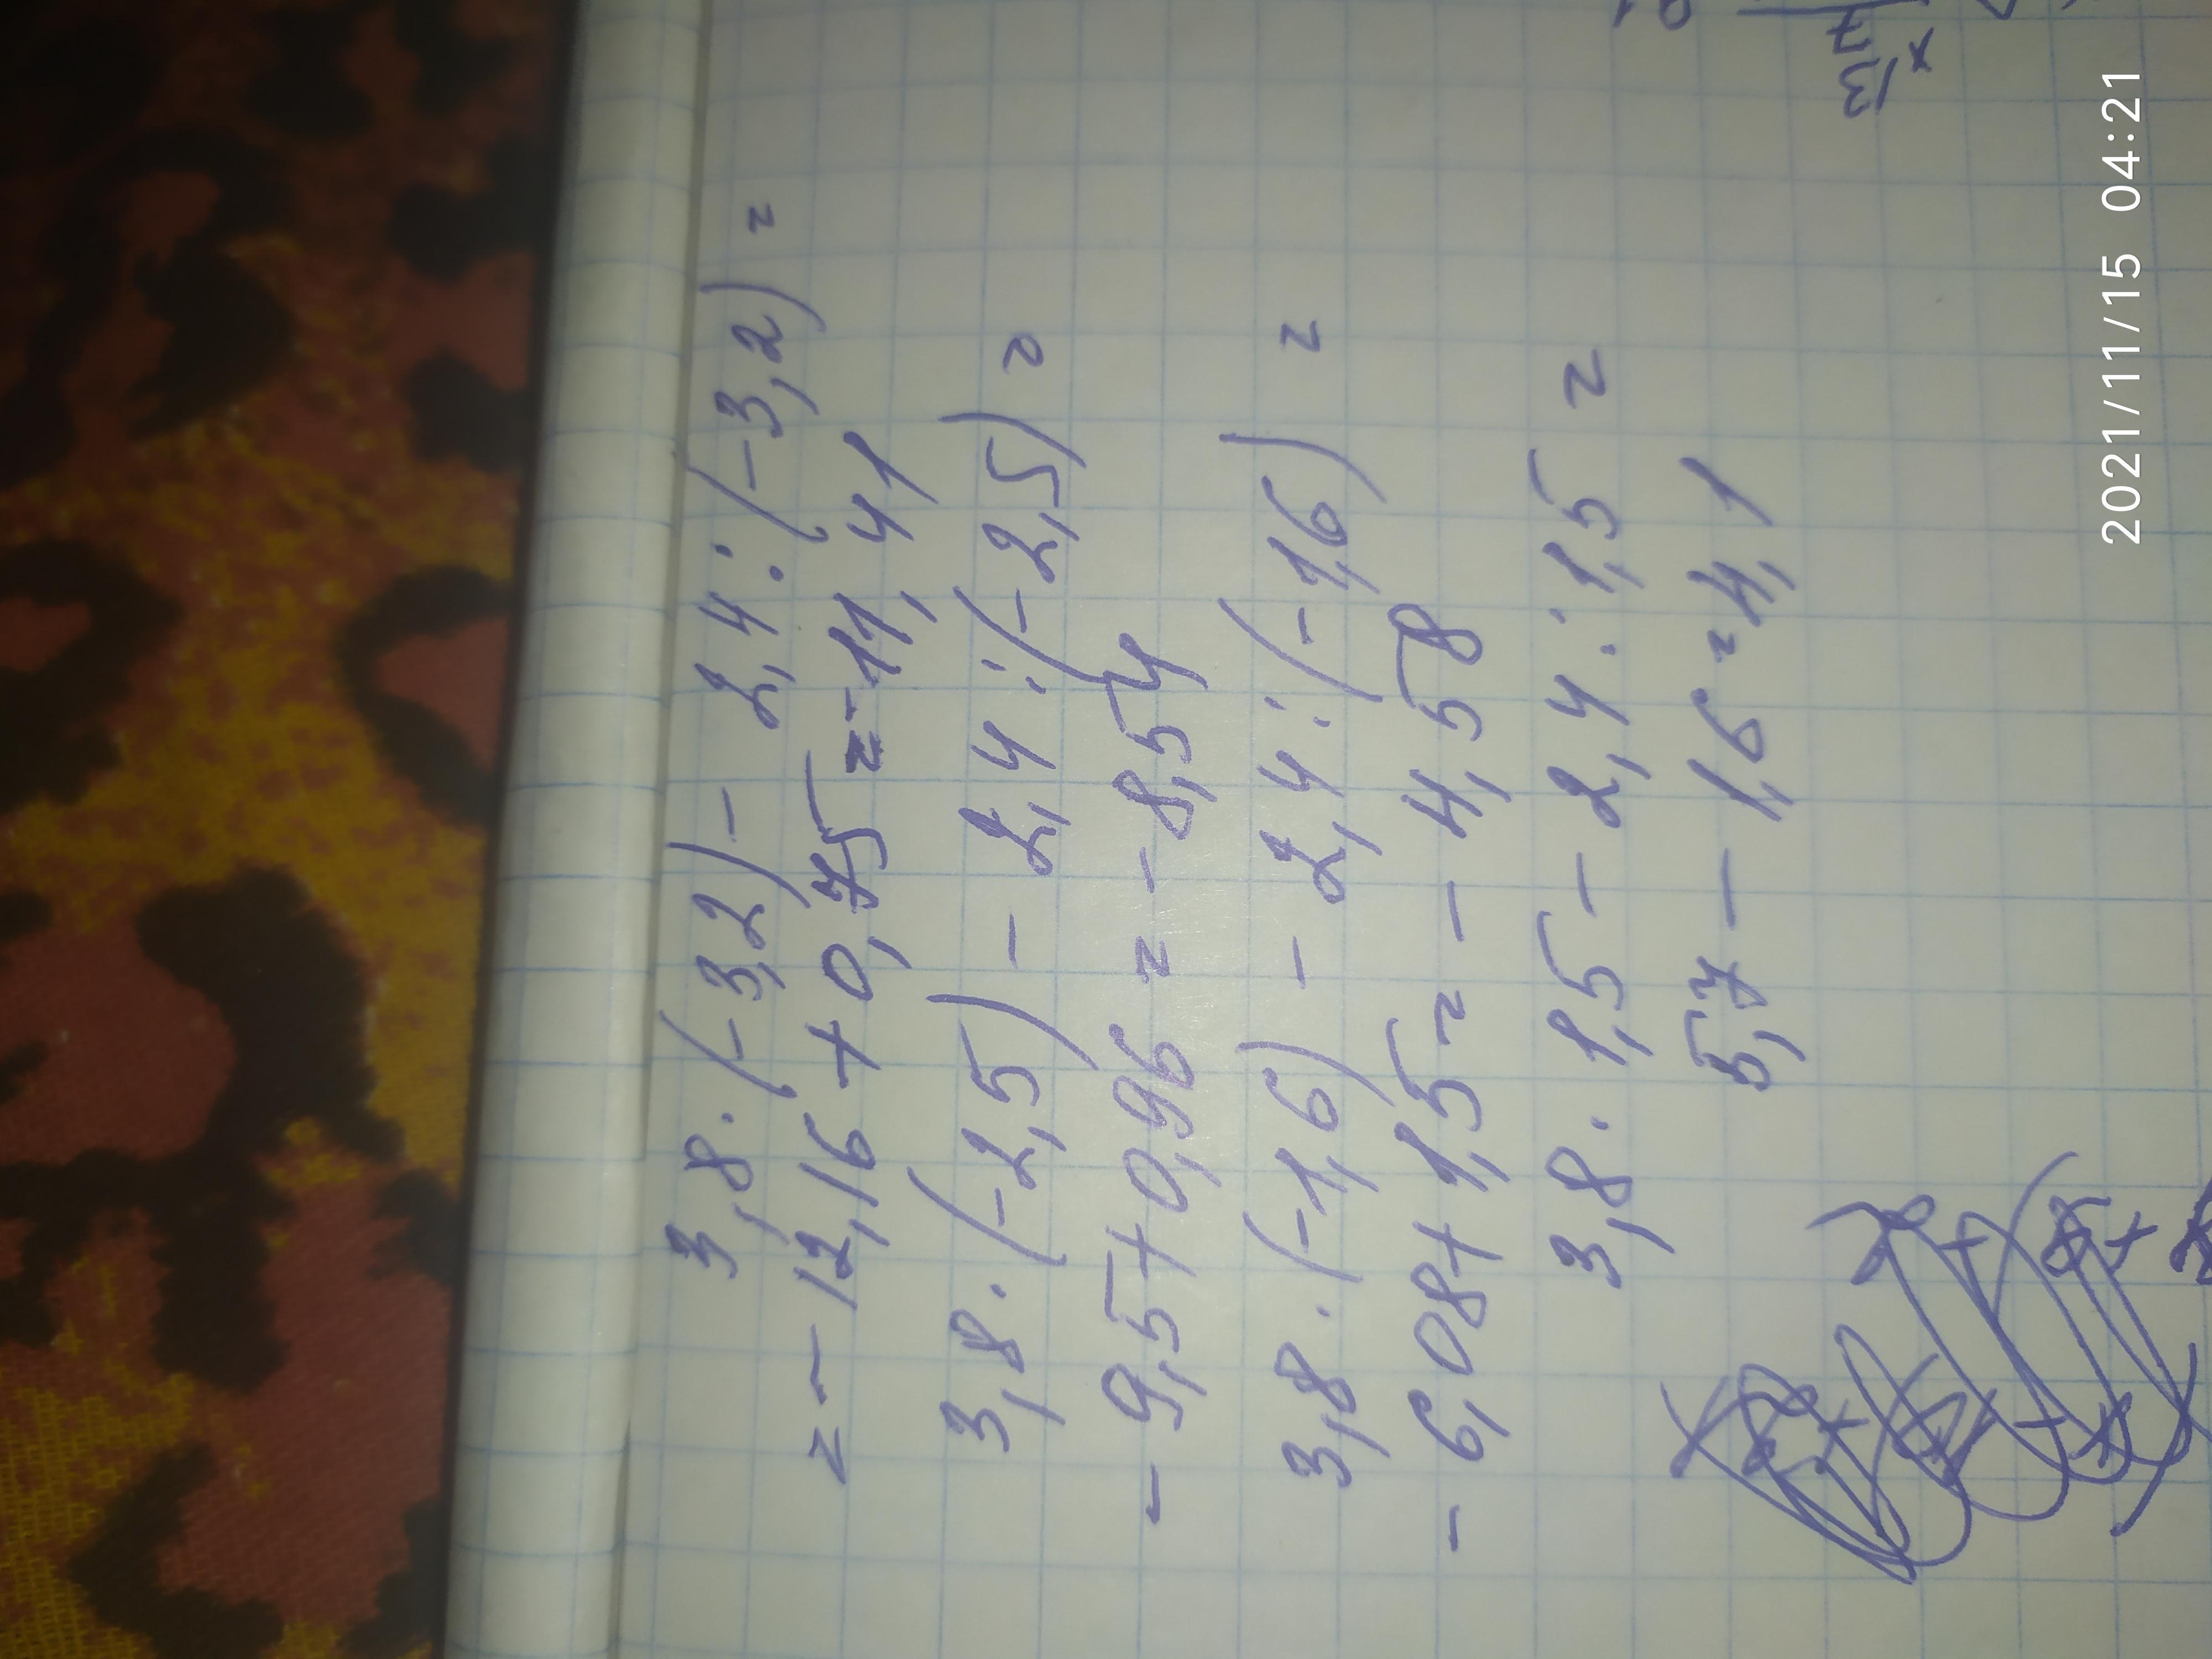 3,8·(-3,2) - 2,4:(-3,2) =
= -12,16 + 0,75 = -11,41
3,8·(-2,5) - 2,4:(-2,5) =
- 9,5 + 0,96 = - 8,54
3,8·(-1,6) - 2,4:(-1,6) =
- 6,08 + 1,5 = - 4,58
3,8·1,5 - 2,4:1,5 =
5,7 - 1,6 = 4,1
2021/11/15 04:21